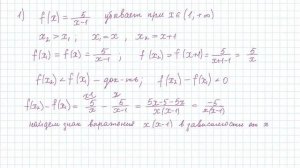 1) f(x) = 5/(x-1) убывает при x ∈ (1, +∞)
x₂ > x₁, x₁ = x, x₂ = x+1
f(x₁) = f(x) = 5/(x-1); f(x₂) = f(x+1) = 5/(x+1-1) = 5/x
f(x₂) < f(x₁) - док-ть; f(x₂) - f(x₁) < 0
f(x₂) - f(x₁) = 5/x - 5/(x-1) = (5x-5-5x)/(x(x-1)) = -5/(x(x-1))
найдем знак выражения x(x-1) в зависимости от x